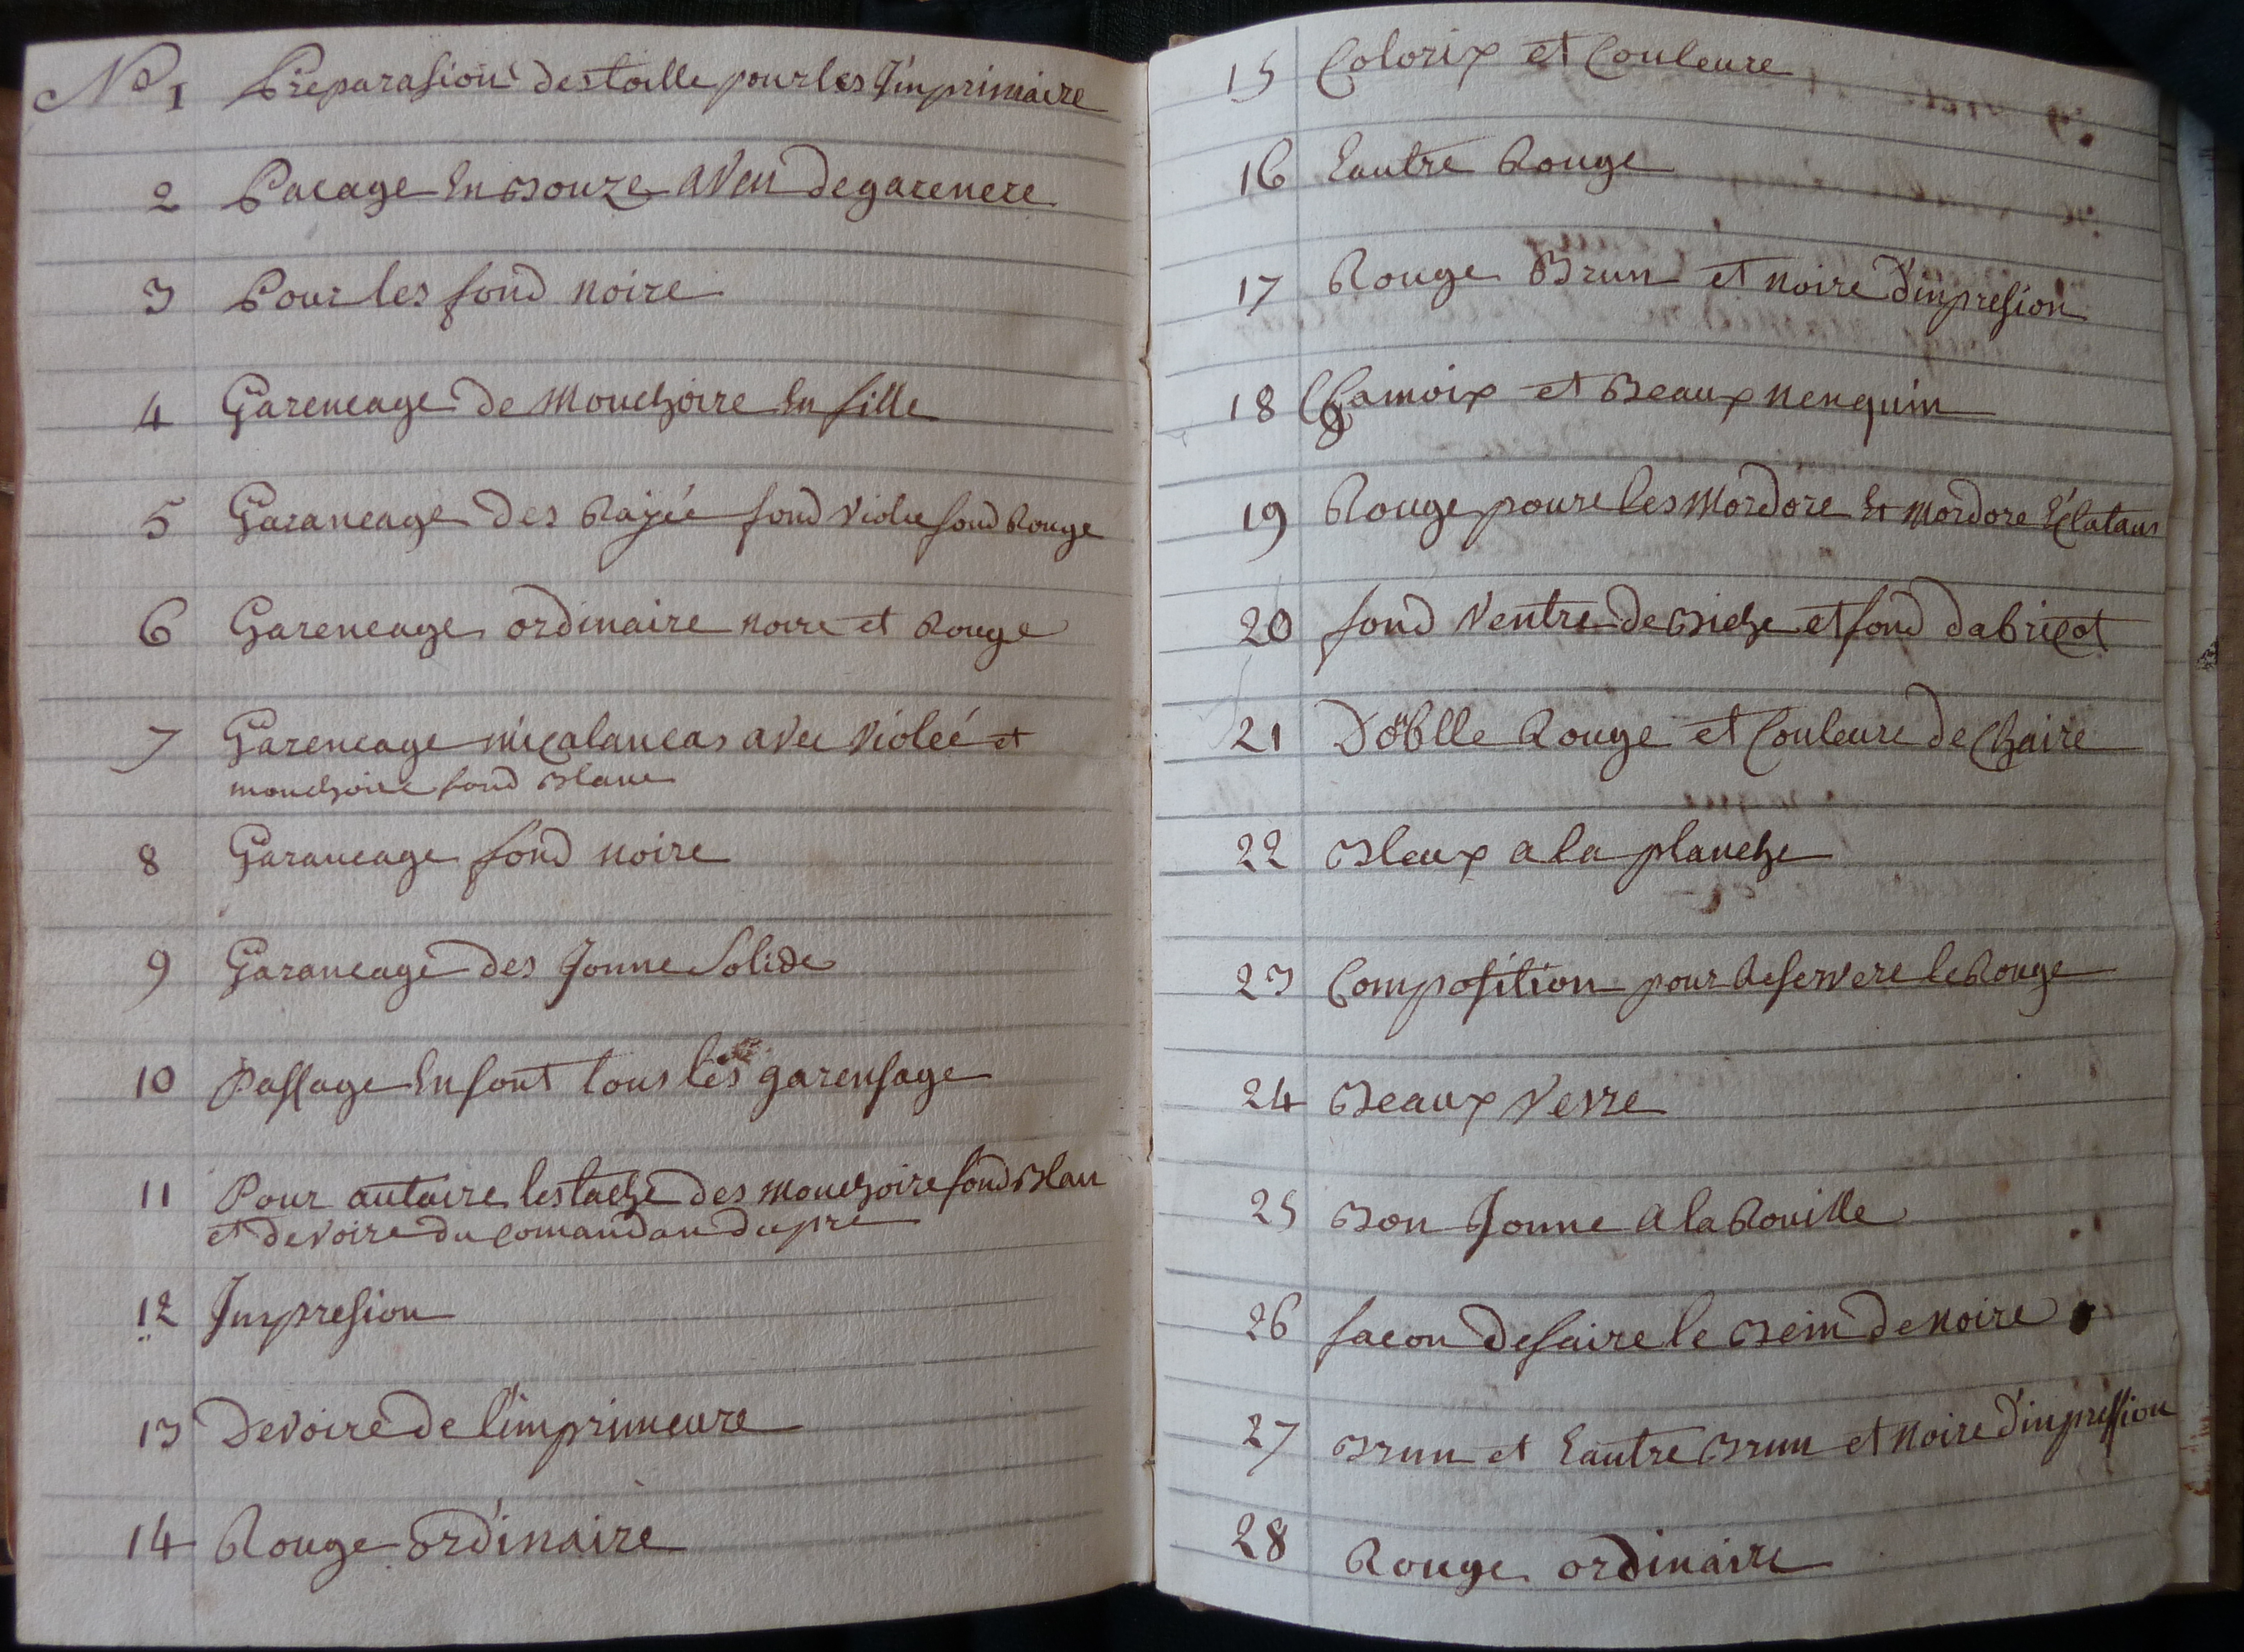 No 1 Preparasion des toille pour les Jinprimaire
2 Pacage En Bouze aven de garencre
3 Pour les fond noire
4 Garencage de Mouchoire En fille
5 Garancage des Rayéé fond violee fond Rouge
6 Garencage ordinaire noire et Rouge
7 Garencage micalancas avec violéé et
mouchoire fond Blanc
8 Garancage fond noire
9 Garancage des Jonne Solide
10 Passage En font tous les garensage
11 Pour autaire les tache des mouchoire fond Blan
et devoire du comandan du pre
12 Jnpresion
13 Devoire de l'imprimeure
14 Rouge ordinaire
15 Colorix et Couleure
16 Eautre Rouge
17 Rouge Brun et noire d'inpresion
18 Chamoix et Beaux nenquin
19 Rouge poure les Mordore Et Mordore Eclatans
20 fond Ventre de Biche et fond dabricot
21 Doblle Rouge et Couleure de Chaire
22 Bleux a la planche
23 Composition pour Reservere le Rouge
24 Beaux Verre
25 Bon Jonne a la Rouille
26 facon de faire le Bein de noire
27 Brun et Eautre Brun et noire d'inpression
28 Rouge ordinaire